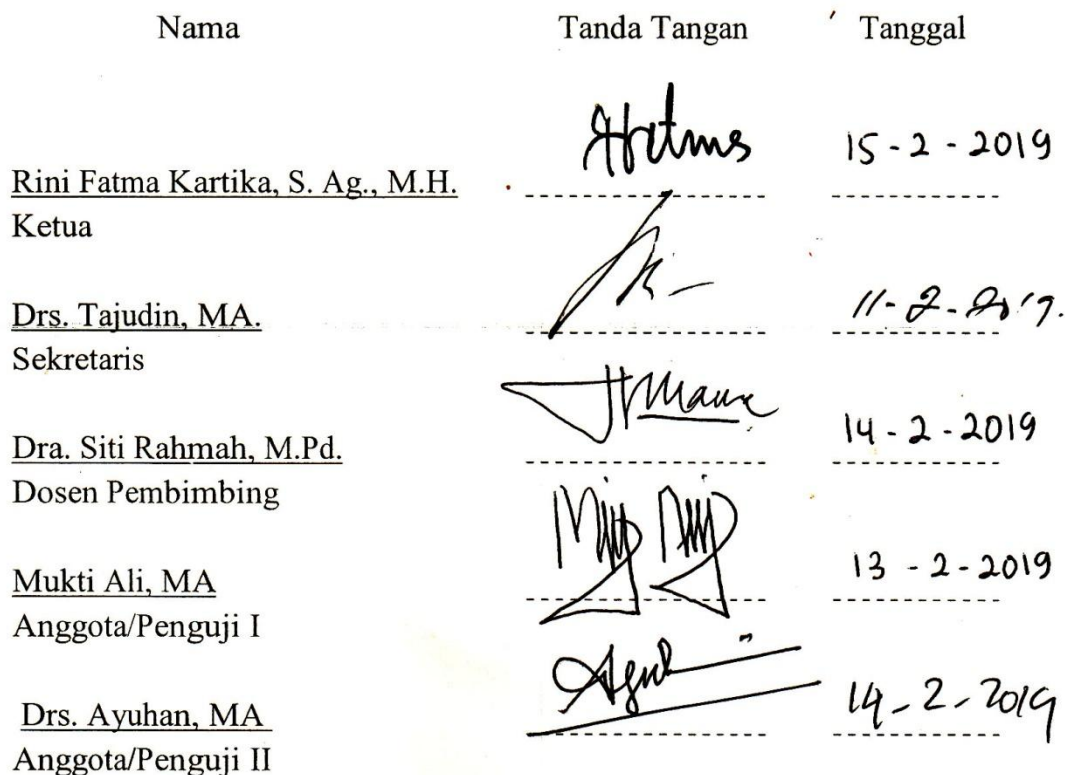 Nama Tanda Tangan Tanggal
15-2-2019
Rini Fatma Kartika, S. Ag., M.H.
Ketua
11-2-2019.
Drs. Tajudin, MA.
Sekretaris
14-2-2019
Dra. Siti Rahmah, M.Pd.
Dosen Pembimbing
13-2-2019
Mukti Ali, MA
Anggota/Penguji I
14-2-2019
Drs. Ayuhan, MA
Anggota/Penguji II